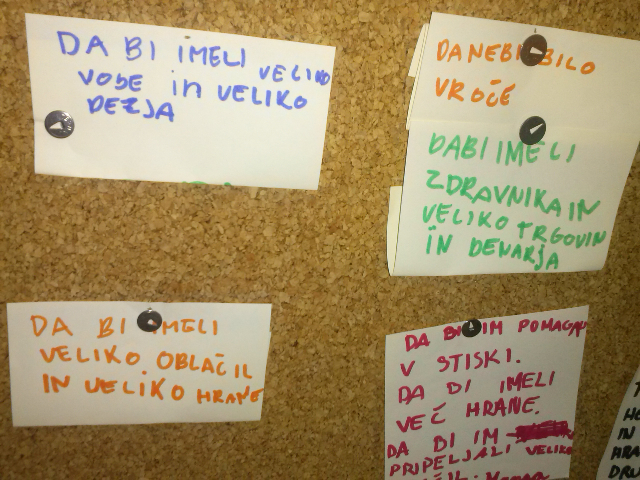 DA BI IMELI VELIKO
VODE in VELIKO
DEZJA
DA NE BI BILO
VROČE
DA BI IMELI
ZDRAVNIKA IN
VELIKO TRGOVIN
IN DENARJA
DA BI IMELI
VELIKO OBLAČIL
IN VELIKO HRANE
DA BI IM POMAGALI
V STISKI.
DA BI IMELI
VEČ HRANE.
DA BI IM
PRIPELJALI VELIKO
IN